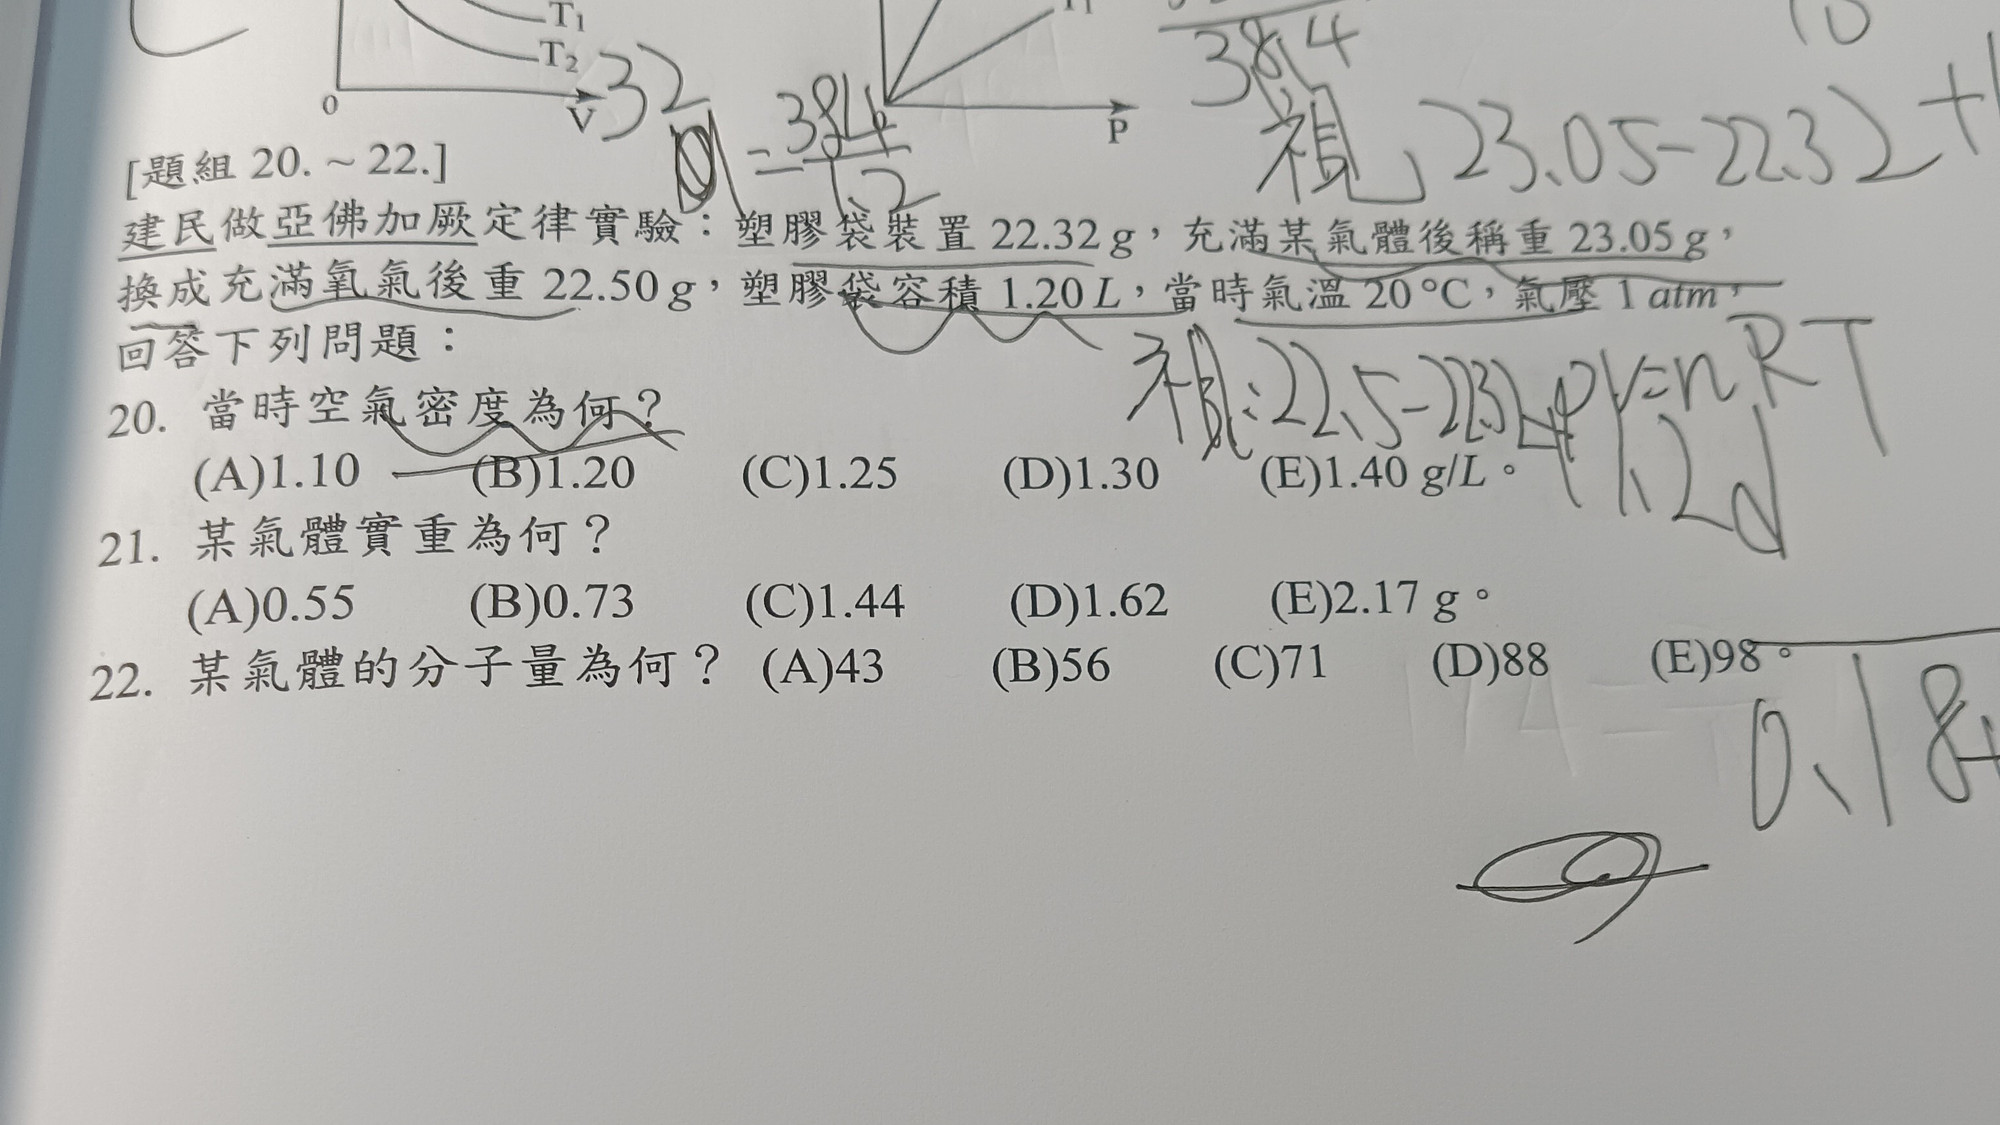 T₁
T₂
0
V
P
38.4
32
= 38.4
1.2
視 23.05-22.32+
[題組 20. ~ 22.]
建民做亞佛加厥定律實驗：塑膠袋裝置 22.32 g，充滿某氣體後稱重 23.05 g，
換成充滿氧氣後重 22.50 g，塑膠袋容積 1.20 L，當時氣溫 20 ℃，氣壓 1 atm，
回答下列問題：
視:22.5-22.32+
PV=nRT
1.2d
20. 當時空氣密度為何？
(A)1.10 (B)1.20 (C)1.25 (D)1.30 (E)1.40 g/L。
21. 某氣體實重為何？
(A)0.55 (B)0.73 (C)1.44 (D)1.62 (E)2.17 g。
22. 某氣體的分子量為何？ (A)43 (B)56 (C)71 (D)88 (E)98。
0.18+